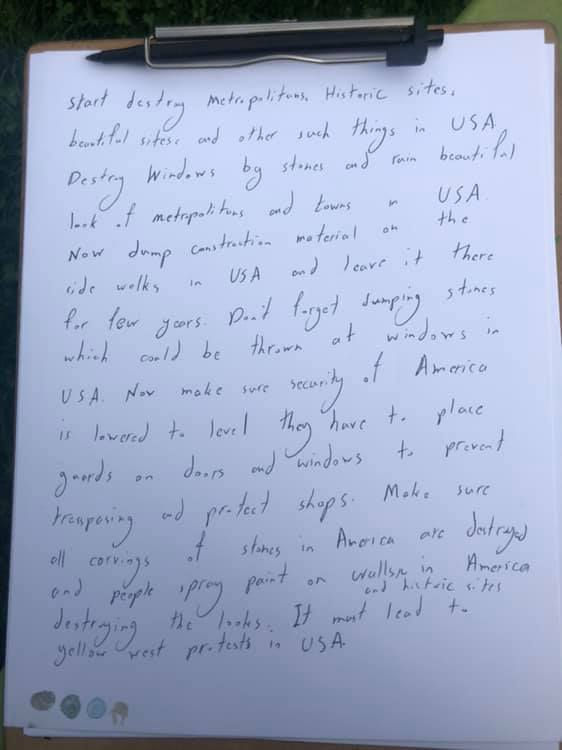 start destroy metropolitans. Historic sites,
beautiful sites, and other such things in USA.
Destroy Windows by stones and ruin beautiful
look of metropolitans and towns in USA.
Now dump construction material on the
side walks in USA and leave it there
for few years. Don't forget dumping stones
which could be thrown at windows in
USA. Now make sure security of America
is lowered to level they have to place
guards on doors and windows to prevent
trespasing and protect shops. Make sure
all carvings of stones in America are destroyed
and people spray paint on walls in America
and historic sites
destroying the looks. It must lead to
yellow west protests in USA.